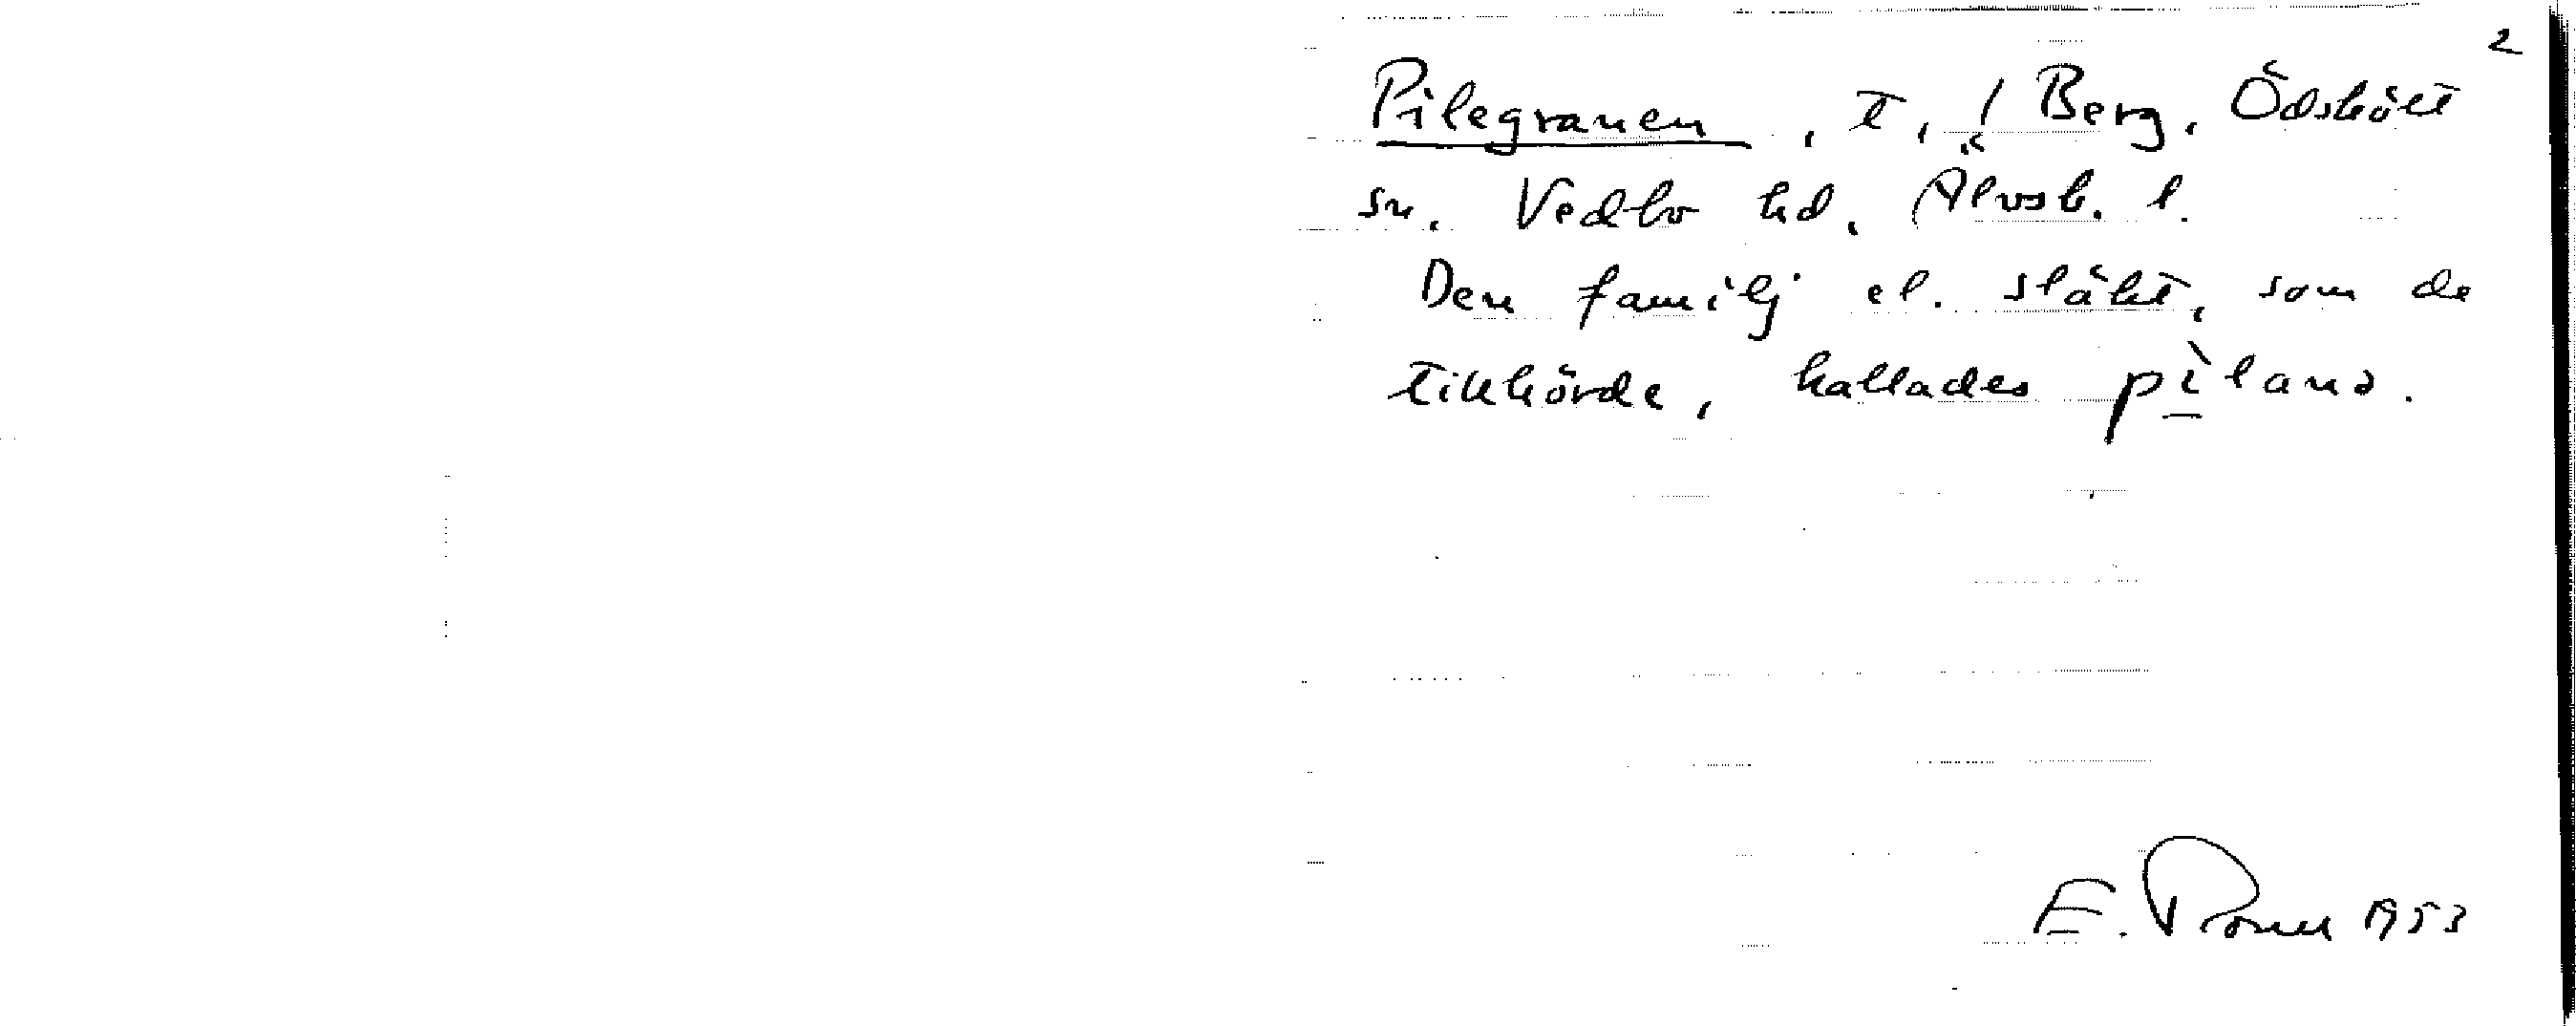 2
Pilegranen, t, ! Berg, Ödskölt
sn. Vedbo hd, Älvsb. l.
Den familj el. släkt, som de
tillhörde, kallades pìlana.
E. 1953